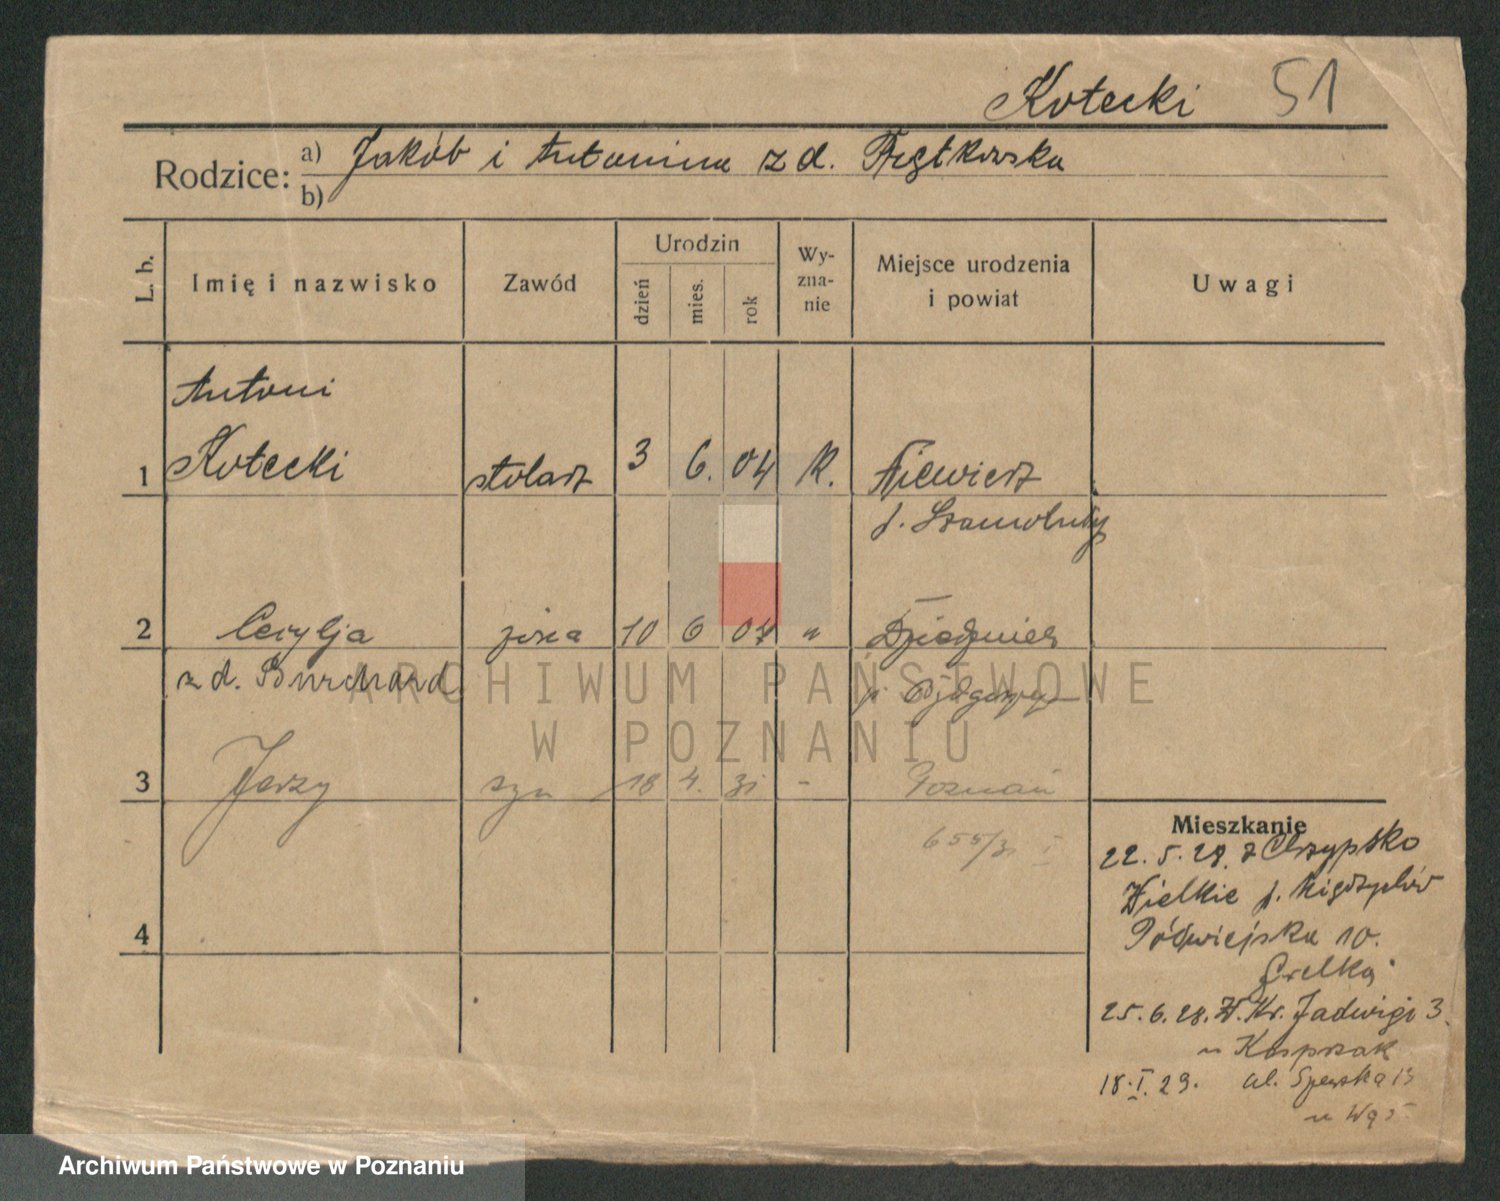 Kotecki 51
Rodzice: a) Jakób i Antonina z d. Frątkowska
b)
L. b.
Imię i nazwisko
Zawód
Urodzin
dzień
mies.
rok
Wy-
zna-
nie
Miejsce urodzenia
i powiat
Uwagi
Antoni
1 Kotecki stolarz 3 6. 04 K. Niewierz
p. Szamotuły
2 Cecylja żona 10 6 04 " 
z d. Burchard p. Bydgoszcz
3 Jerzy syn 18 4. 31 - Poznań
655/31 I
4
Mieszkanie
22. 5. 28. z Chrzypsko
Wielkie p. Międzychód
Półwiejska 10.
25. 6. 28. W. Kr. Jadwigi 3.
u Kasprzak
18. I. 29. ul. 13
u
ARCHIWUM PAŃSTWOWE
W POZNANIU
Archiwum Państwowe w Poznaniu